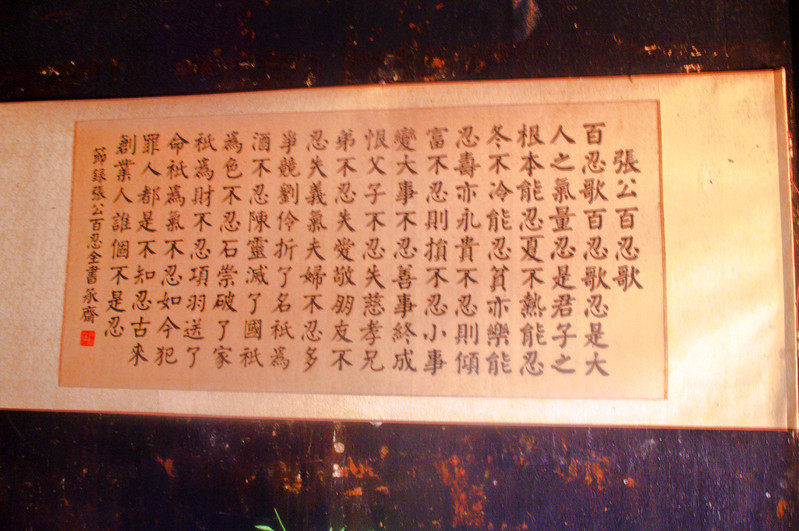 張公百忍歌
百忍歌百忍歌忍是大
人之氣量忍是君子之
根本能忍夏不熱能忍
冬不冷能忍貧亦樂能
忍壽亦永貴不忍則傾
富不忍則損不忍小事
變大事不忍善事終成
恨父子不忍失慈孝兄
弟不忍失愛敬朋友不
忍失義氣夫婦不忍多
爭競劉伶折了名衹為
酒不忍陳靈滅了國衹
為色不忍石崇破了家
衹為財不忍項羽送了
命衹為氣不忍如今犯
罪人都是不知忍古來
創業人誰個不是忍
節錄張公百忍全書承齋